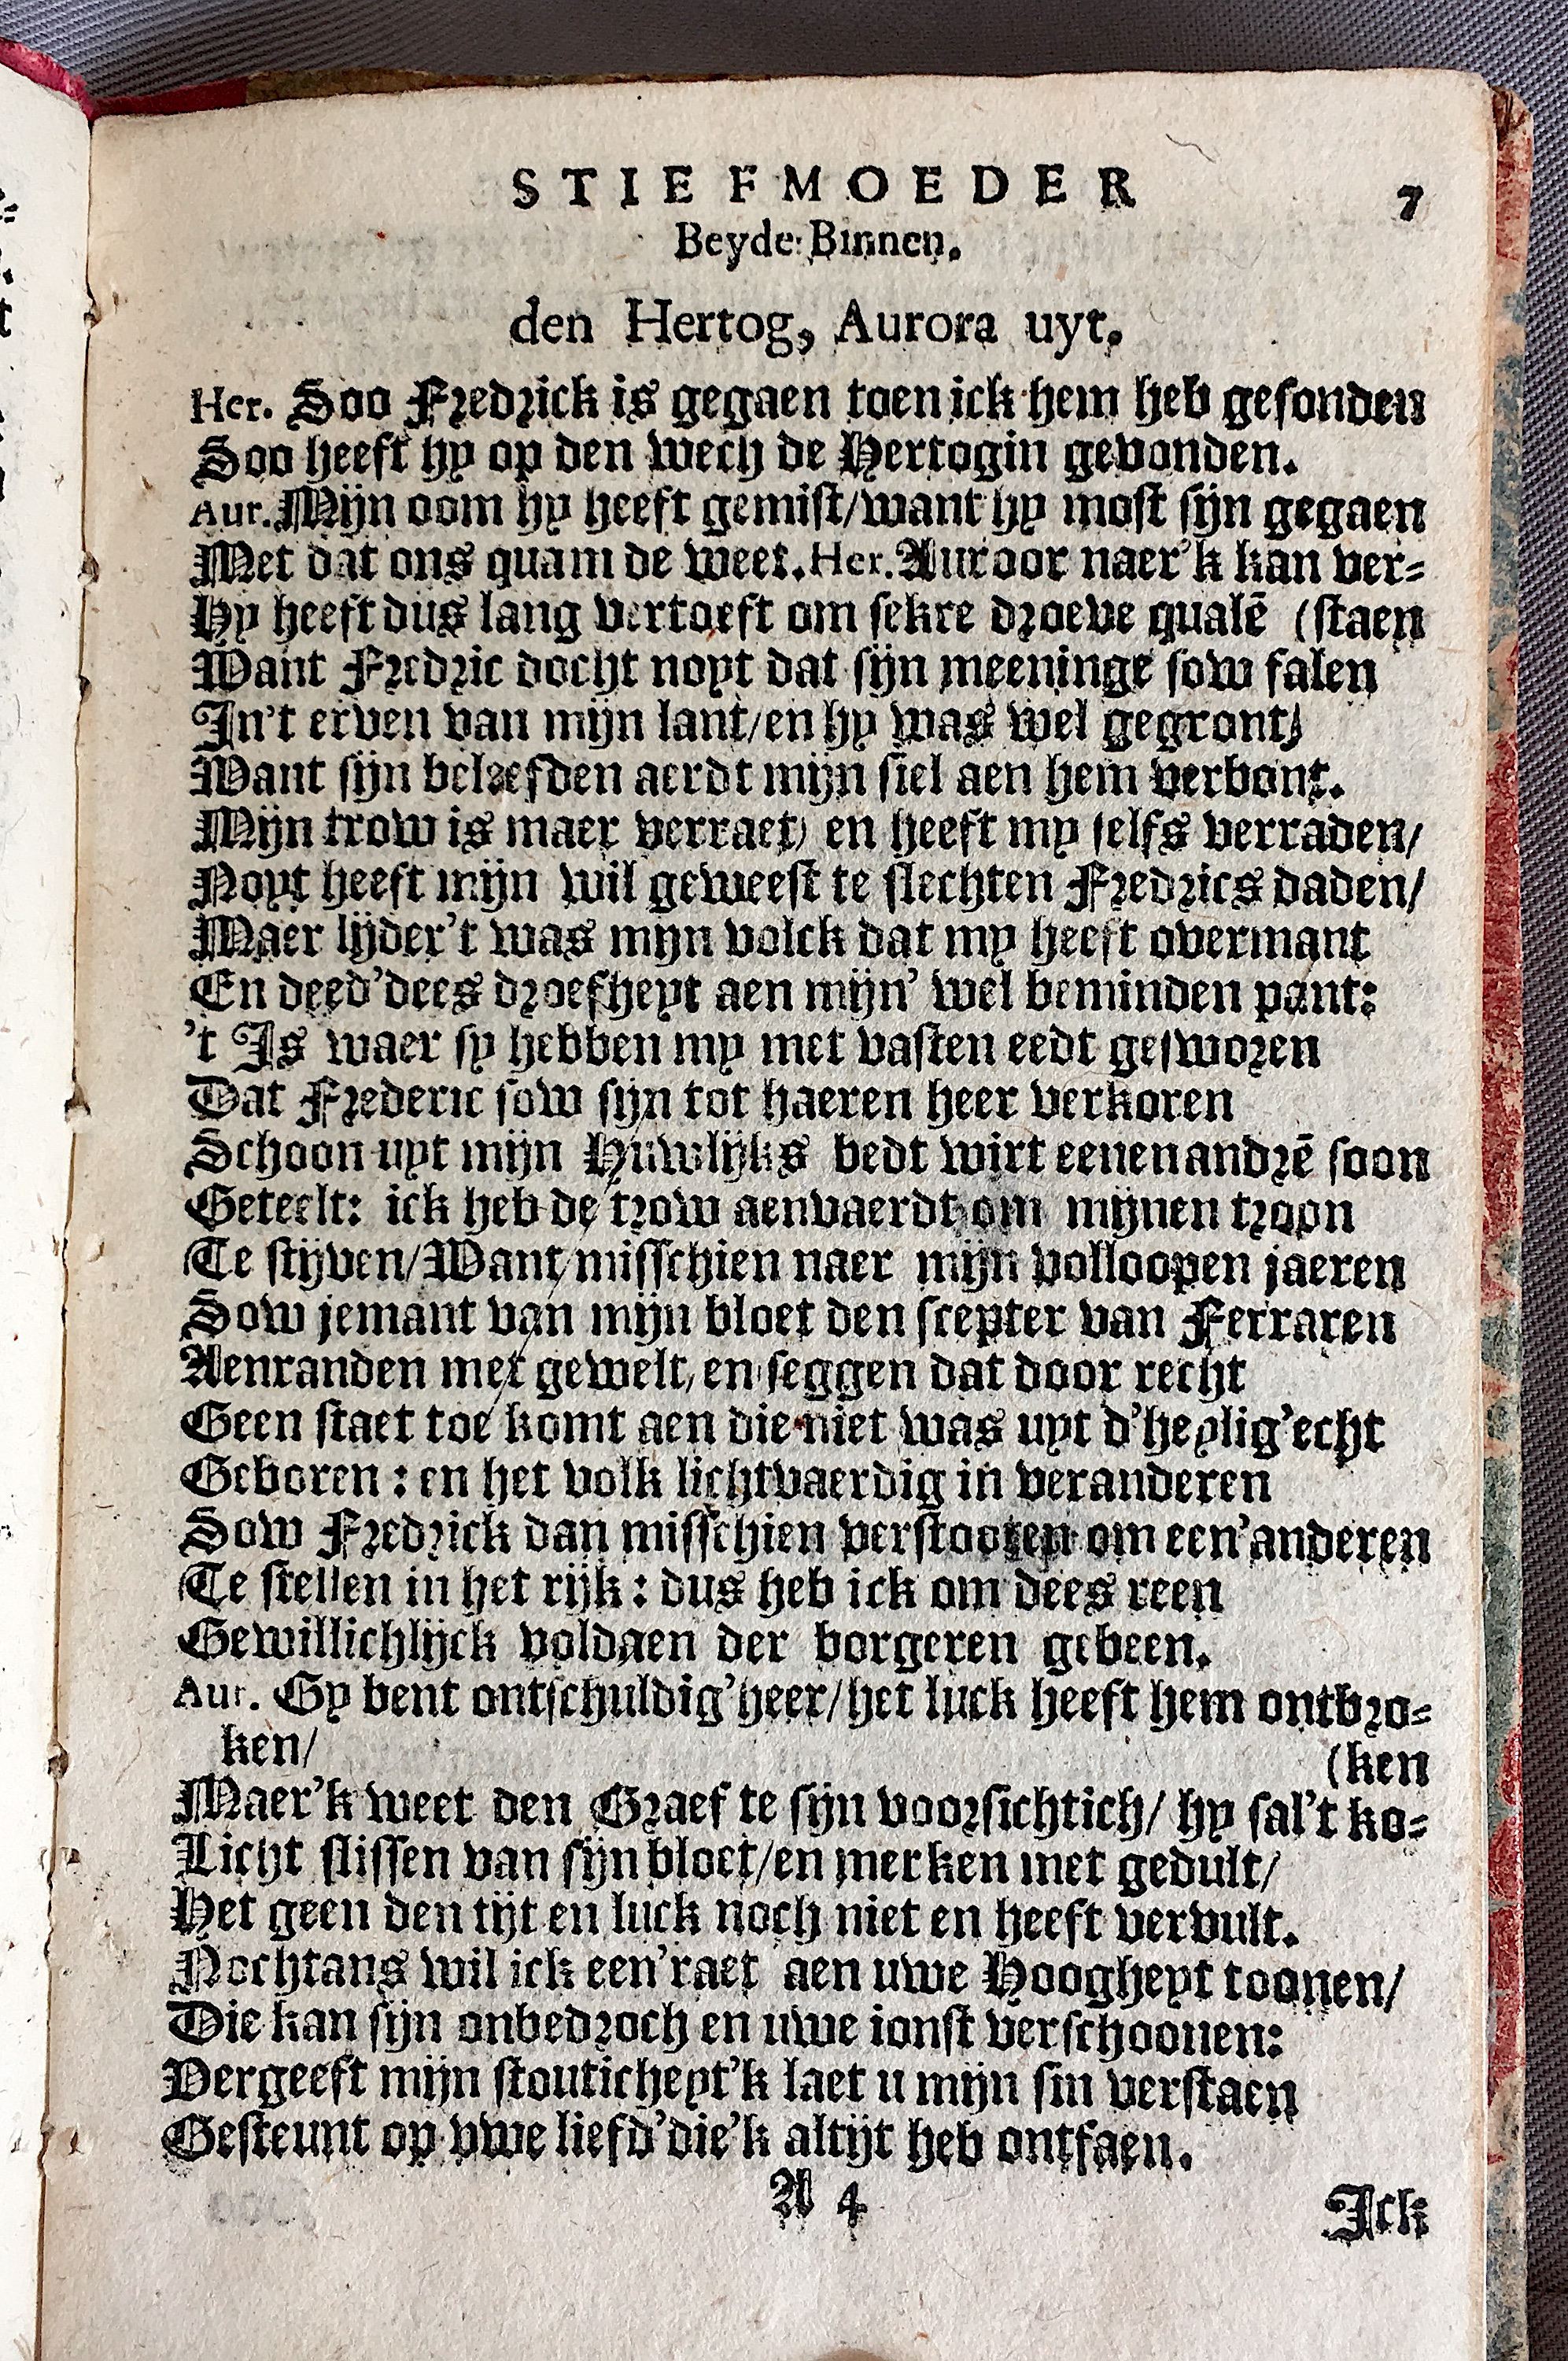 STIEFMOEDER 7
Beyde Binnen.
den Hertog, Aurora uyt.
Her. Soo Fredrick is gegaen toen ick hem heb gesonden
Soo heeft hy op den wech de Hertogin gevonden.
Aur. Mijn oom hy heeft gemist/want hy most sijn gegaen
Met dat ons quam de weet. Her. Auroor naer'k kan ver-
Hy heeft dus lang vertoeft om sekre droeve qualē (staen
Want Fredric docht noyt dat sijn meeninge sow falen
In't erven van mijn lant/en hy was wel gegront/
Want sijn beleefden aerdt mijn siel aen hem verbont.
Mijn trow is maer verraet/ en heeft my selfs verraden/
Noyt heeft mijn wil geweest te slechten Fredrics daden/
Maer lijder't was mijn volck dat my heeft overmant
En deed'dees droefheyt aen mijn' wel beminden pant:
't Is waer sy hebben my met vasten eedt gesworen
Dat Frederic sow sijn tot haeren heer verkoren
Schoon uyt mijn Huwlijks bedt wirt eenen andrē soon
Geteelt: ick heb de trow aenvaerdt om mijnen troon
Te stijven/Want misschien naer mijn volloopen jaeren
Sow jemant van mijn bloet den scepter van Ferraren
Aenranden met gewelt, en seggen dat door recht
Geen staet toe komt aen die niet was uyt d'heylig'echt
Geboren : en het volk lichtvaerdig in veranderen
Sow Fredrick dan misschien verstooten om een'anderen
Te stellen in het rijk : dus heb ick om dees reen
Gewillichlijck voldaen der borgeren gebeen.
Aur. Gy bent ontschuldig'heer/het luck heeft hem ontbro-
ken/ (ken
Maer'k weet den Graef te sijn voorsichtich/ hy sal't ko-
Licht slissen van sijn bloet/en merken met gedult/
Het geen den tijt en luck noch niet en heeft vervult.
Nochtans wil ick een'raet aen uwe Hoogheyt toonen/
Die kan sijn onbedroch en uwe ionst verschoonen:
Vergeeft mijn stouticheyt'k laet u mijn sin verstaen
Gesteunt op vwe liefd'die'k altijt heb ontfaen.
A 4 Ick